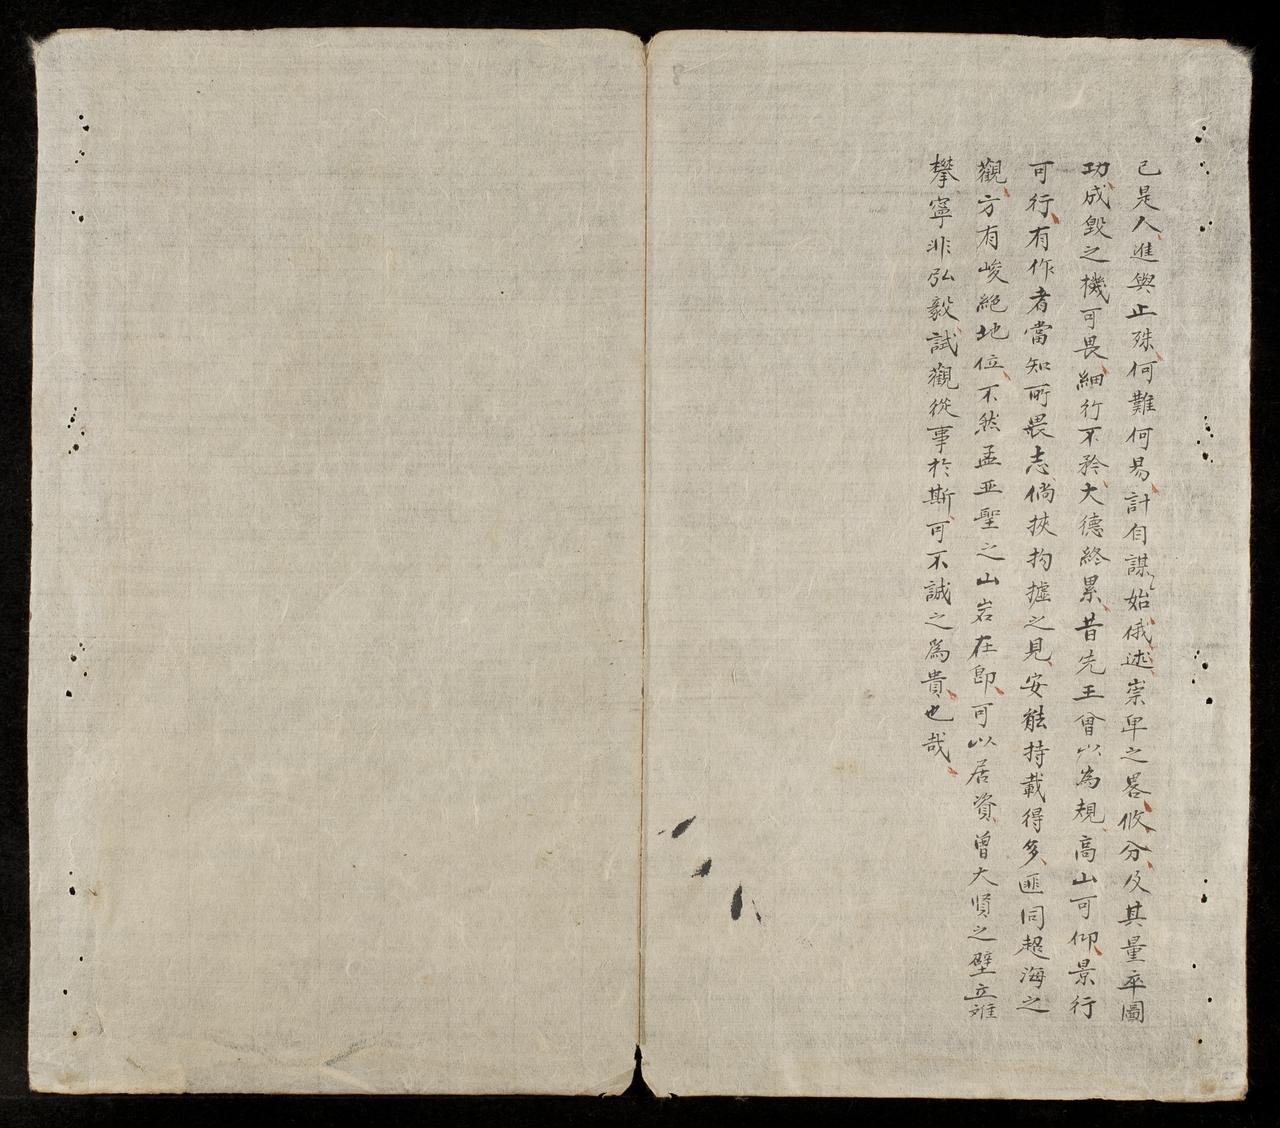 己是人進與止殊何難何易計自謀始俄述崇卑之畧攸分及其量卒圖
功成毀之機可畏細行不矜大德終累昔先王曾以為規高山可仰景行
可行有作者當知所畏志倘挾拘墟之見安能持載得多匪同超海之
觀方有峻絕地位不然孟亞聖之山岩在即可以居資曾大賢之壁立難
攀寧非弘毅試觀從事於斯可不誠之為貴也哉
8